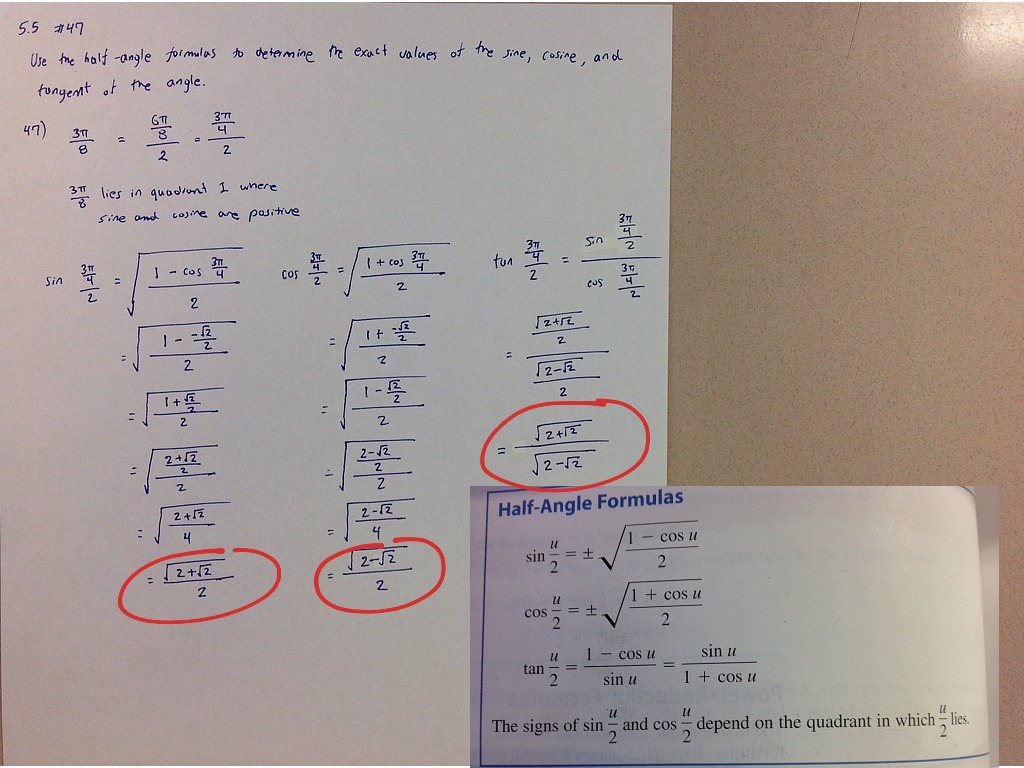 5.5 #47
Use the half-angle formulas to determine the exact values of the sine, cosine, and
tangent of the angle.
47) 3π/8 = (6π/8)/2 = (3π/4)/2
3π/8 lies in quadrant I where
sine and cosine are positive
sin (3π/4)/2 = √((1 - cos 3π/4)/2)
= √((1 - -√2/2)/2)
= √((1 + √2/2)/2)
= √(((2+√2)/2)/2)
= √((2+√2)/4)
= √(2+√2)/2
cos (3π/4)/2 = √((1 + cos 3π/4)/2)
= √((1 + -√2/2)/2)
= √((1 - √2/2)/2)
= √(((2-√2)/2)/2)
= √((2-√2)/4)
= √(2-√2)/2
tan (3π/4)/2 = (sin (3π/4)/2)/(cos (3π/4)/2)
= (√(2+√2)/2)/(√(2-√2)/2)
= √(2+√2)/√(2-√2)
Half-Angle Formulas
sin u/2 = ± √((1 - cos u)/2)
cos u/2 = ± √((1 + cos u)/2)
tan u/2 = (1 - cos u)/(sin u) = (sin u)/(1 + cos u)
The signs of sin u/2 and cos u/2 depend on the quadrant in which u/2 lies.